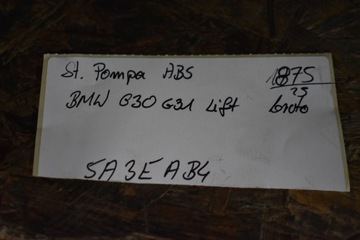 St. Pompa ABS 1875
25
BMW G30 G31 Lift bruto
5A3EAB4